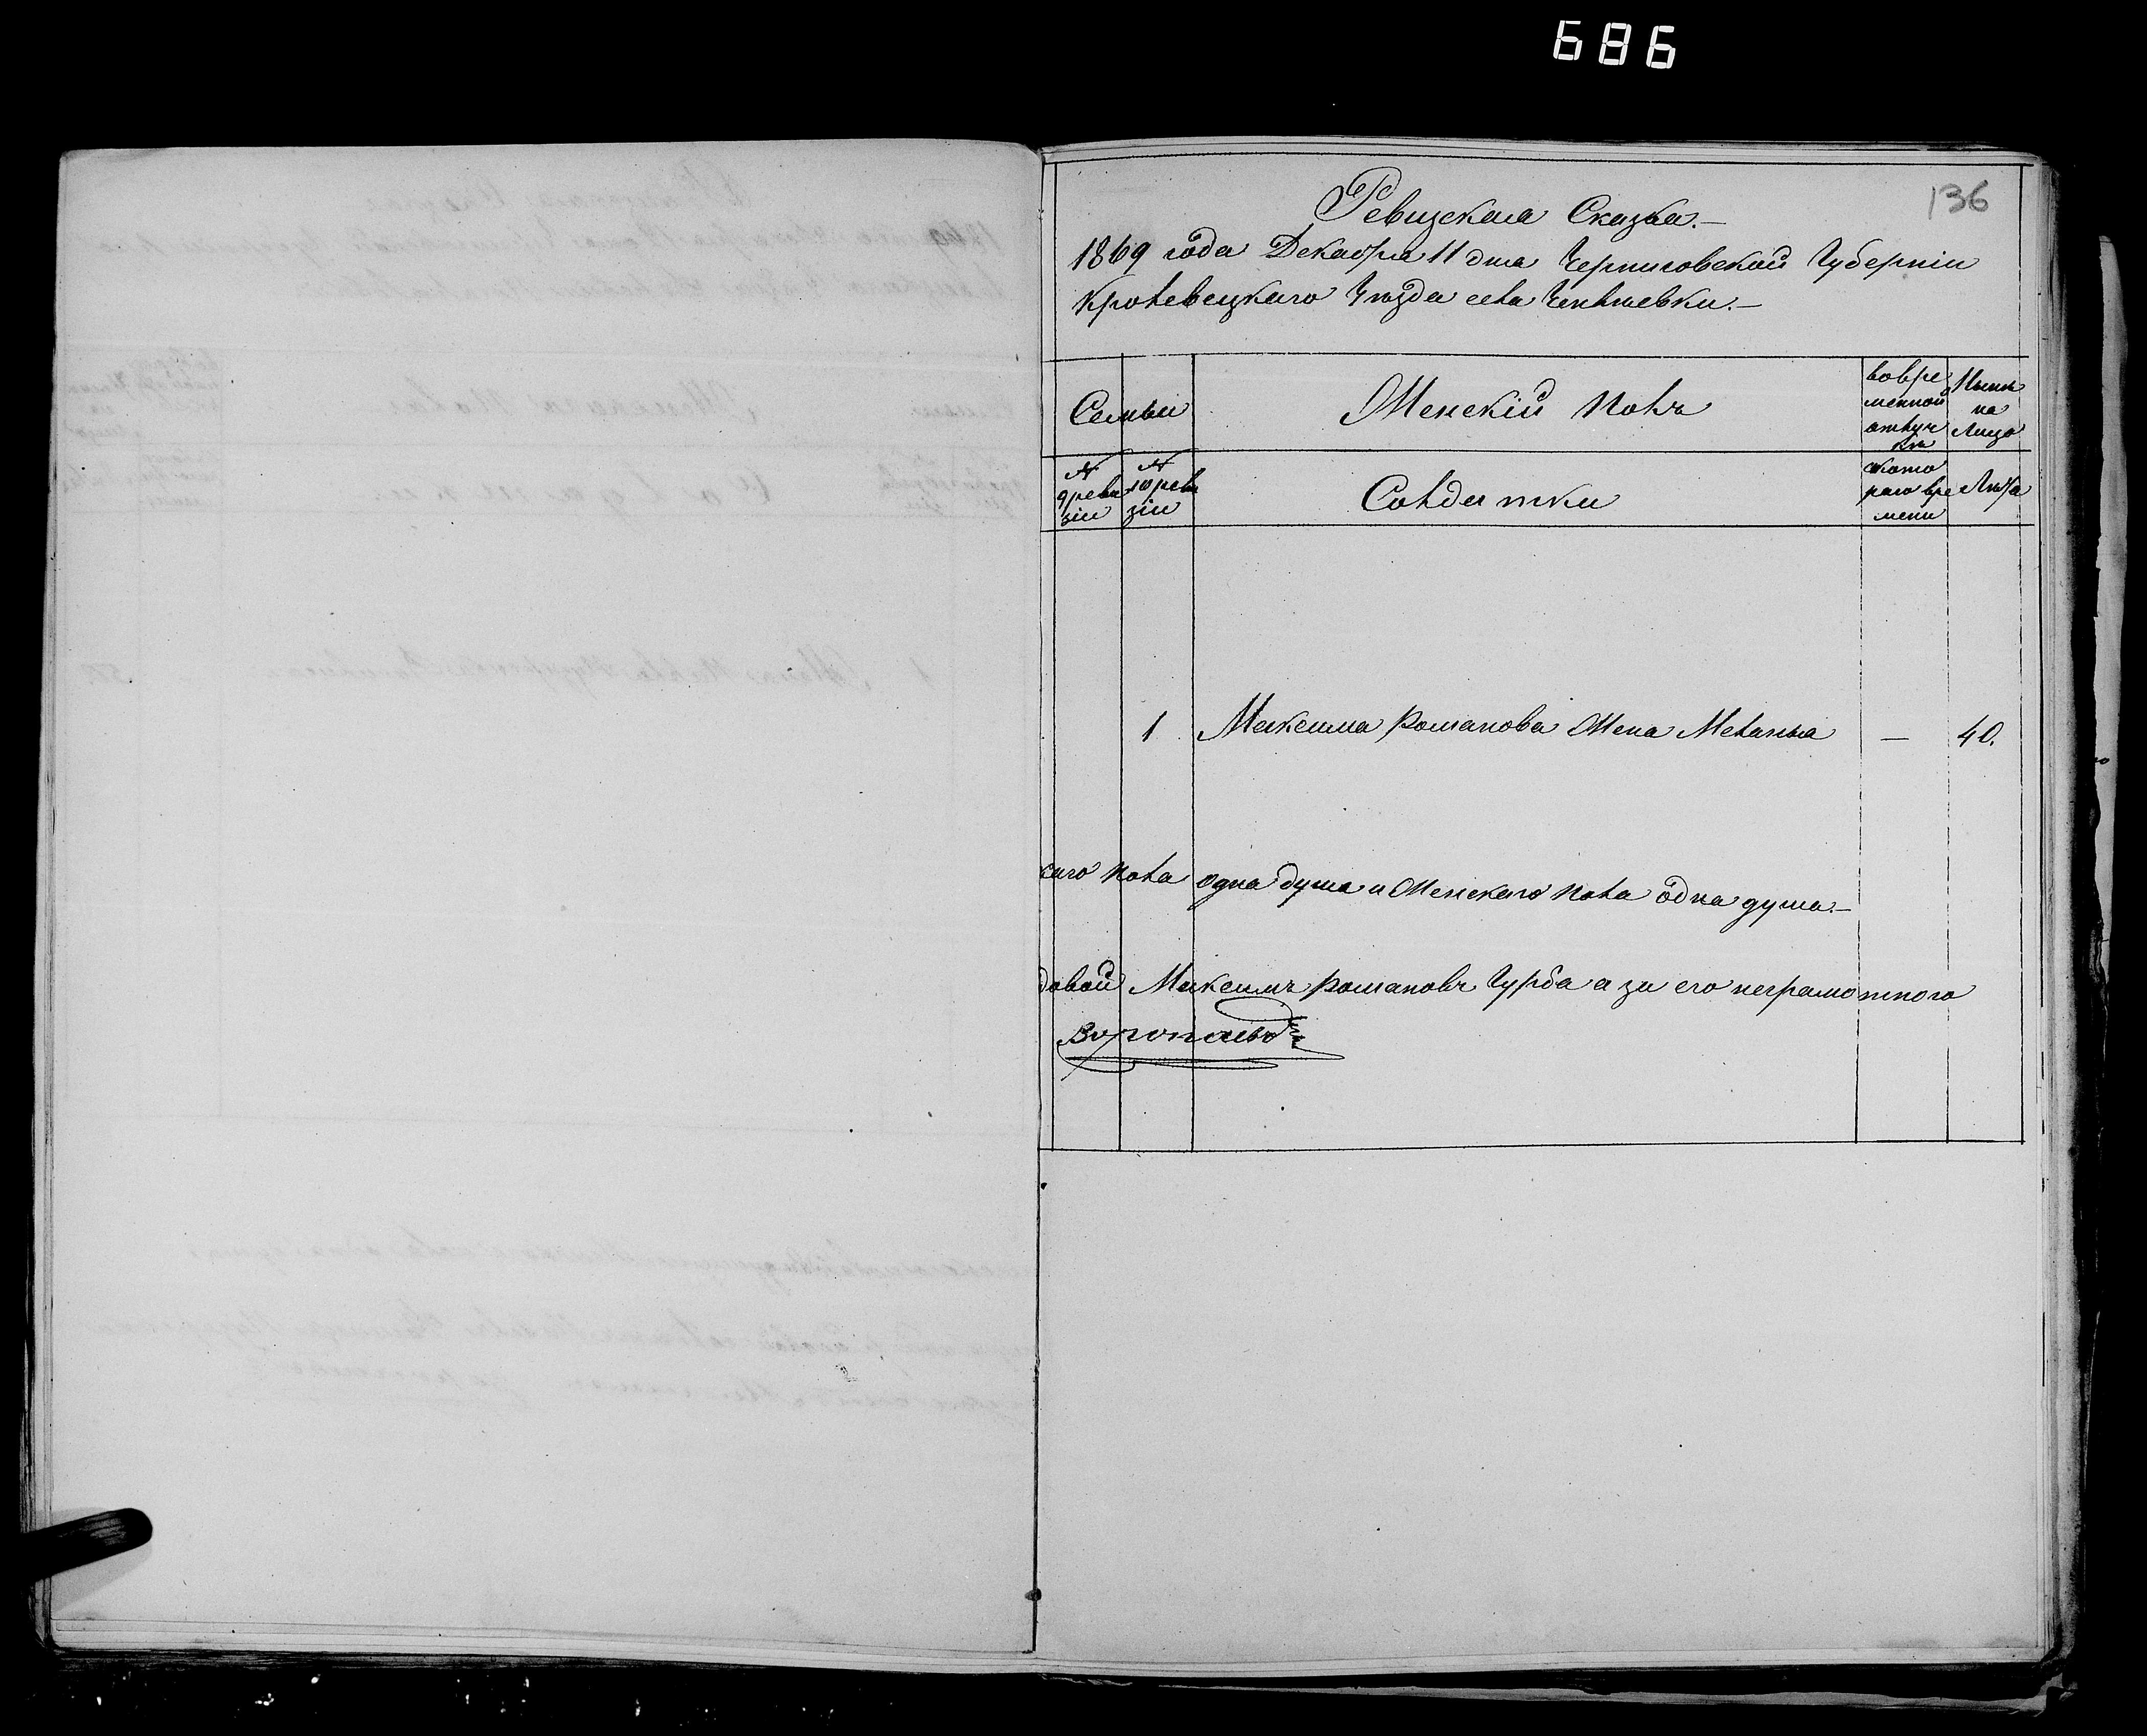 686
136
Ревизская Сказка.—
1869 года Декабря 11 дня Черниговской Губерніи
Кролевецкаго Уѣзда села
Семьи
Женскій Полъ
вовре
менной
отлуч
кѣ
Нынѣ
на
Лицо
№
9 реви
зіи
№
10 реви
зіи
Солдатки
ското
раго вре
мени
Лѣта
1 Максима Романова Жена Меланья — 40.
скаго пола одна душа и Женскаго пола одна душа.—
довой Максимъ Романовъ Чурба а за его неграмотного